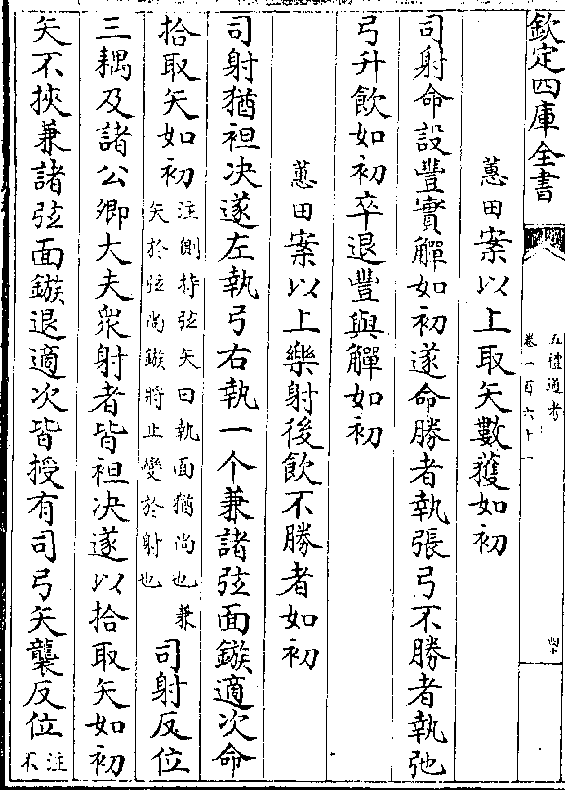 欽定四庫全書
五禮通考
卷一百六十一
四十
蕙田案以上取矢數獲如初
司射命設豐實觶如初遂命勝者執張弓不勝者執弛
弓升飲如初卒退豐與觶如初
蕙田案以上樂射後飲不勝者如初
司射猶袒决遂左執弓右執一个兼諸弦面鏃適次命
拾取矢如初注側持弦矢曰執面猶尚也兼矢於弦尚鏃將止變於射也司射反位
三耦及諸公卿大夫衆射者皆袒决遂以拾取矢如初
矢不挾兼諸弦面鏃退適次皆授有司弓矢襲反位注不